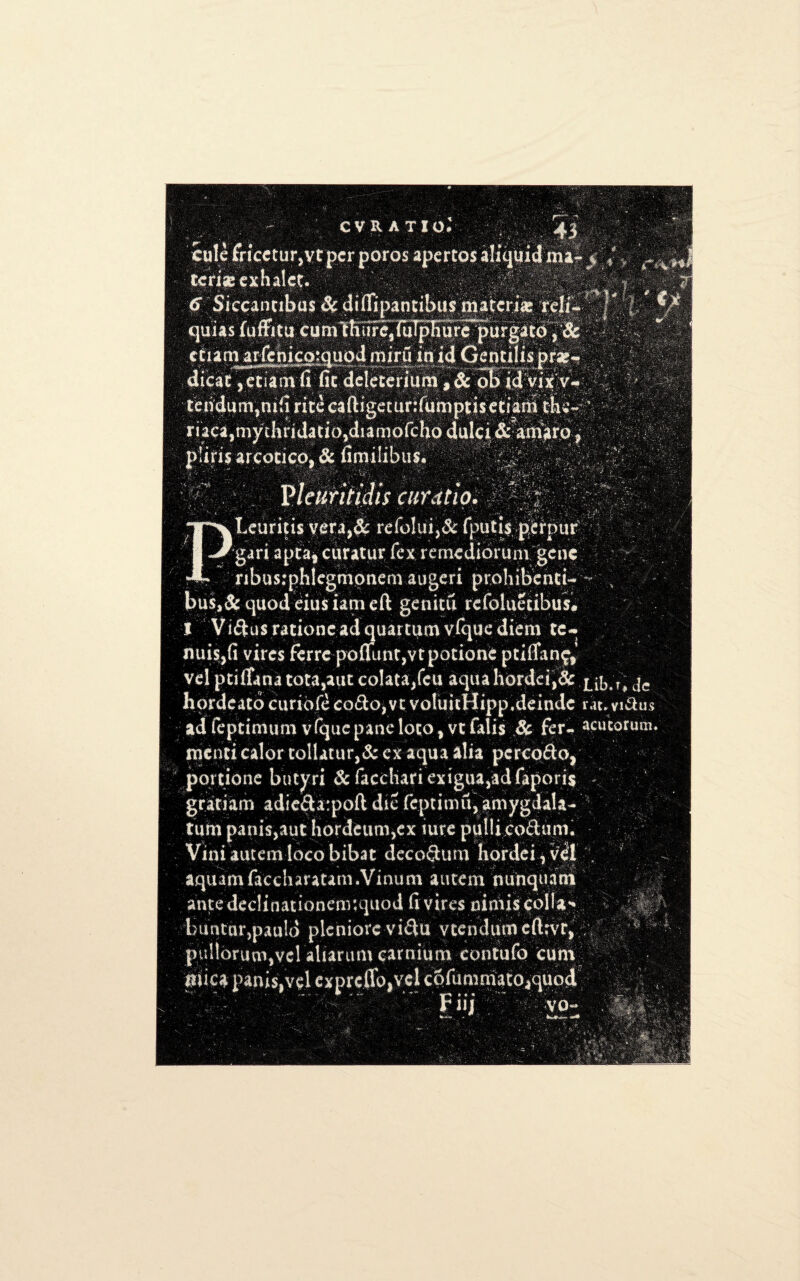 CVRATIO. 43
culè fricetur,vt per poros apertos aliquid ma-
teriæ exhalet.
6 Siccantibus & dissipantibus materiæ reli-
quias suffitu cum thure,sulphure purgato, &
etiam arsenico:quod mirū in id Gentilis præ-
dicat, etiam si sit deleterium, & ob id vix v-
tendum,nisi ritè castigetur:sumptis etiam the-
riaca,mythridatio,diamoscho dulci & amaro,
pliris arcotico, & similibus.
Pleuritidis curatio.
PLeuritis vera,& resolui,& sputis perpur
gari apta, curatur sex remediorum gene
ribus:phlegmonem augeri prohibenti-
bus,& quod eius iam est genitū resoluētibus.
1 Victus ratione ad quartum vsque diem te-
nuis,si vires ferre possunt,vt potione ptissanę,
vel ptissana tota,aut colata,seu aqua hordei,&
hordeato curiosè cocto,vt voluit Hipp.deinde
ad septimum vsque pane loto, vt salis & fer-
menti calor tollatur,& ex aqua alia percocto,
portione butyri & sacchari exigua,ad saporis
gratiam adiecta:post diē septimū, amygdala-
tum panis,aut hordeum,ex iure pulli coctum.
Vini autem loco bibat decoctum hordei, vel
aquam saccharatam.Vinum autem nunquam
ante declinationem:quod si vires nimis colla-
buntur,paulò pleniore victu vtendum est:vt,
pullorum,vel aliarum carnium contuso cum
mica panis,vel expresso,vel cōsummato,quod
F iij vo-
Lib.1. de
rat.victus
acutorum.